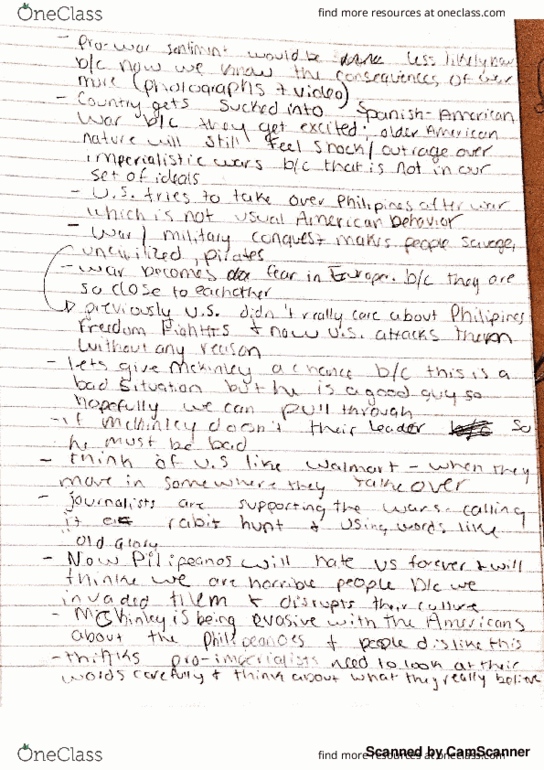 OneClass
find more resources at oneclass.com
- pro-war sentiment would be less likely now
b/c now we know the consequences of war
more (photographs + video)
- Country gets sucked into Spanish-American
War b/c they get excited; older American
nature will still feel shock/outrage over
imperialistic wars b/c that is not in our
set of ideals
- U.S. tries to take over Philipines after war
which is not usual American behavior
- War/military conquest makes people savage,
uncivilized, pirates
- war becomes fear in Europe. b/c they are
so close to eachother
previously U.S. didn't really care about Philipines
Freedom Fighters + now U.S. attacks them
without any reason
- lets give Mckinley a chance b/c this is a
bad situation but he is a good guy so
hopefully we can pull through
- if mckinley doesn't their leader so
he must be bad
- think of U.S like Walmart - when they
move in somewhere they take over
- journalists are supporting the wars - calling
it a rabit hunt + using words like
"old glory
- Now Pilipeanos will hate us forever + will
thinke we are horrible people b/c we
invaded them + disrupts their culture
- McKinley is being evasive with the Americans
about the Philipeanoes + people dislike this
- thinks pro-imperialists need to look at their
words carefully + think about what they really believe
OneClass
find more resources at oneclass.com
Scanned by CamScanner